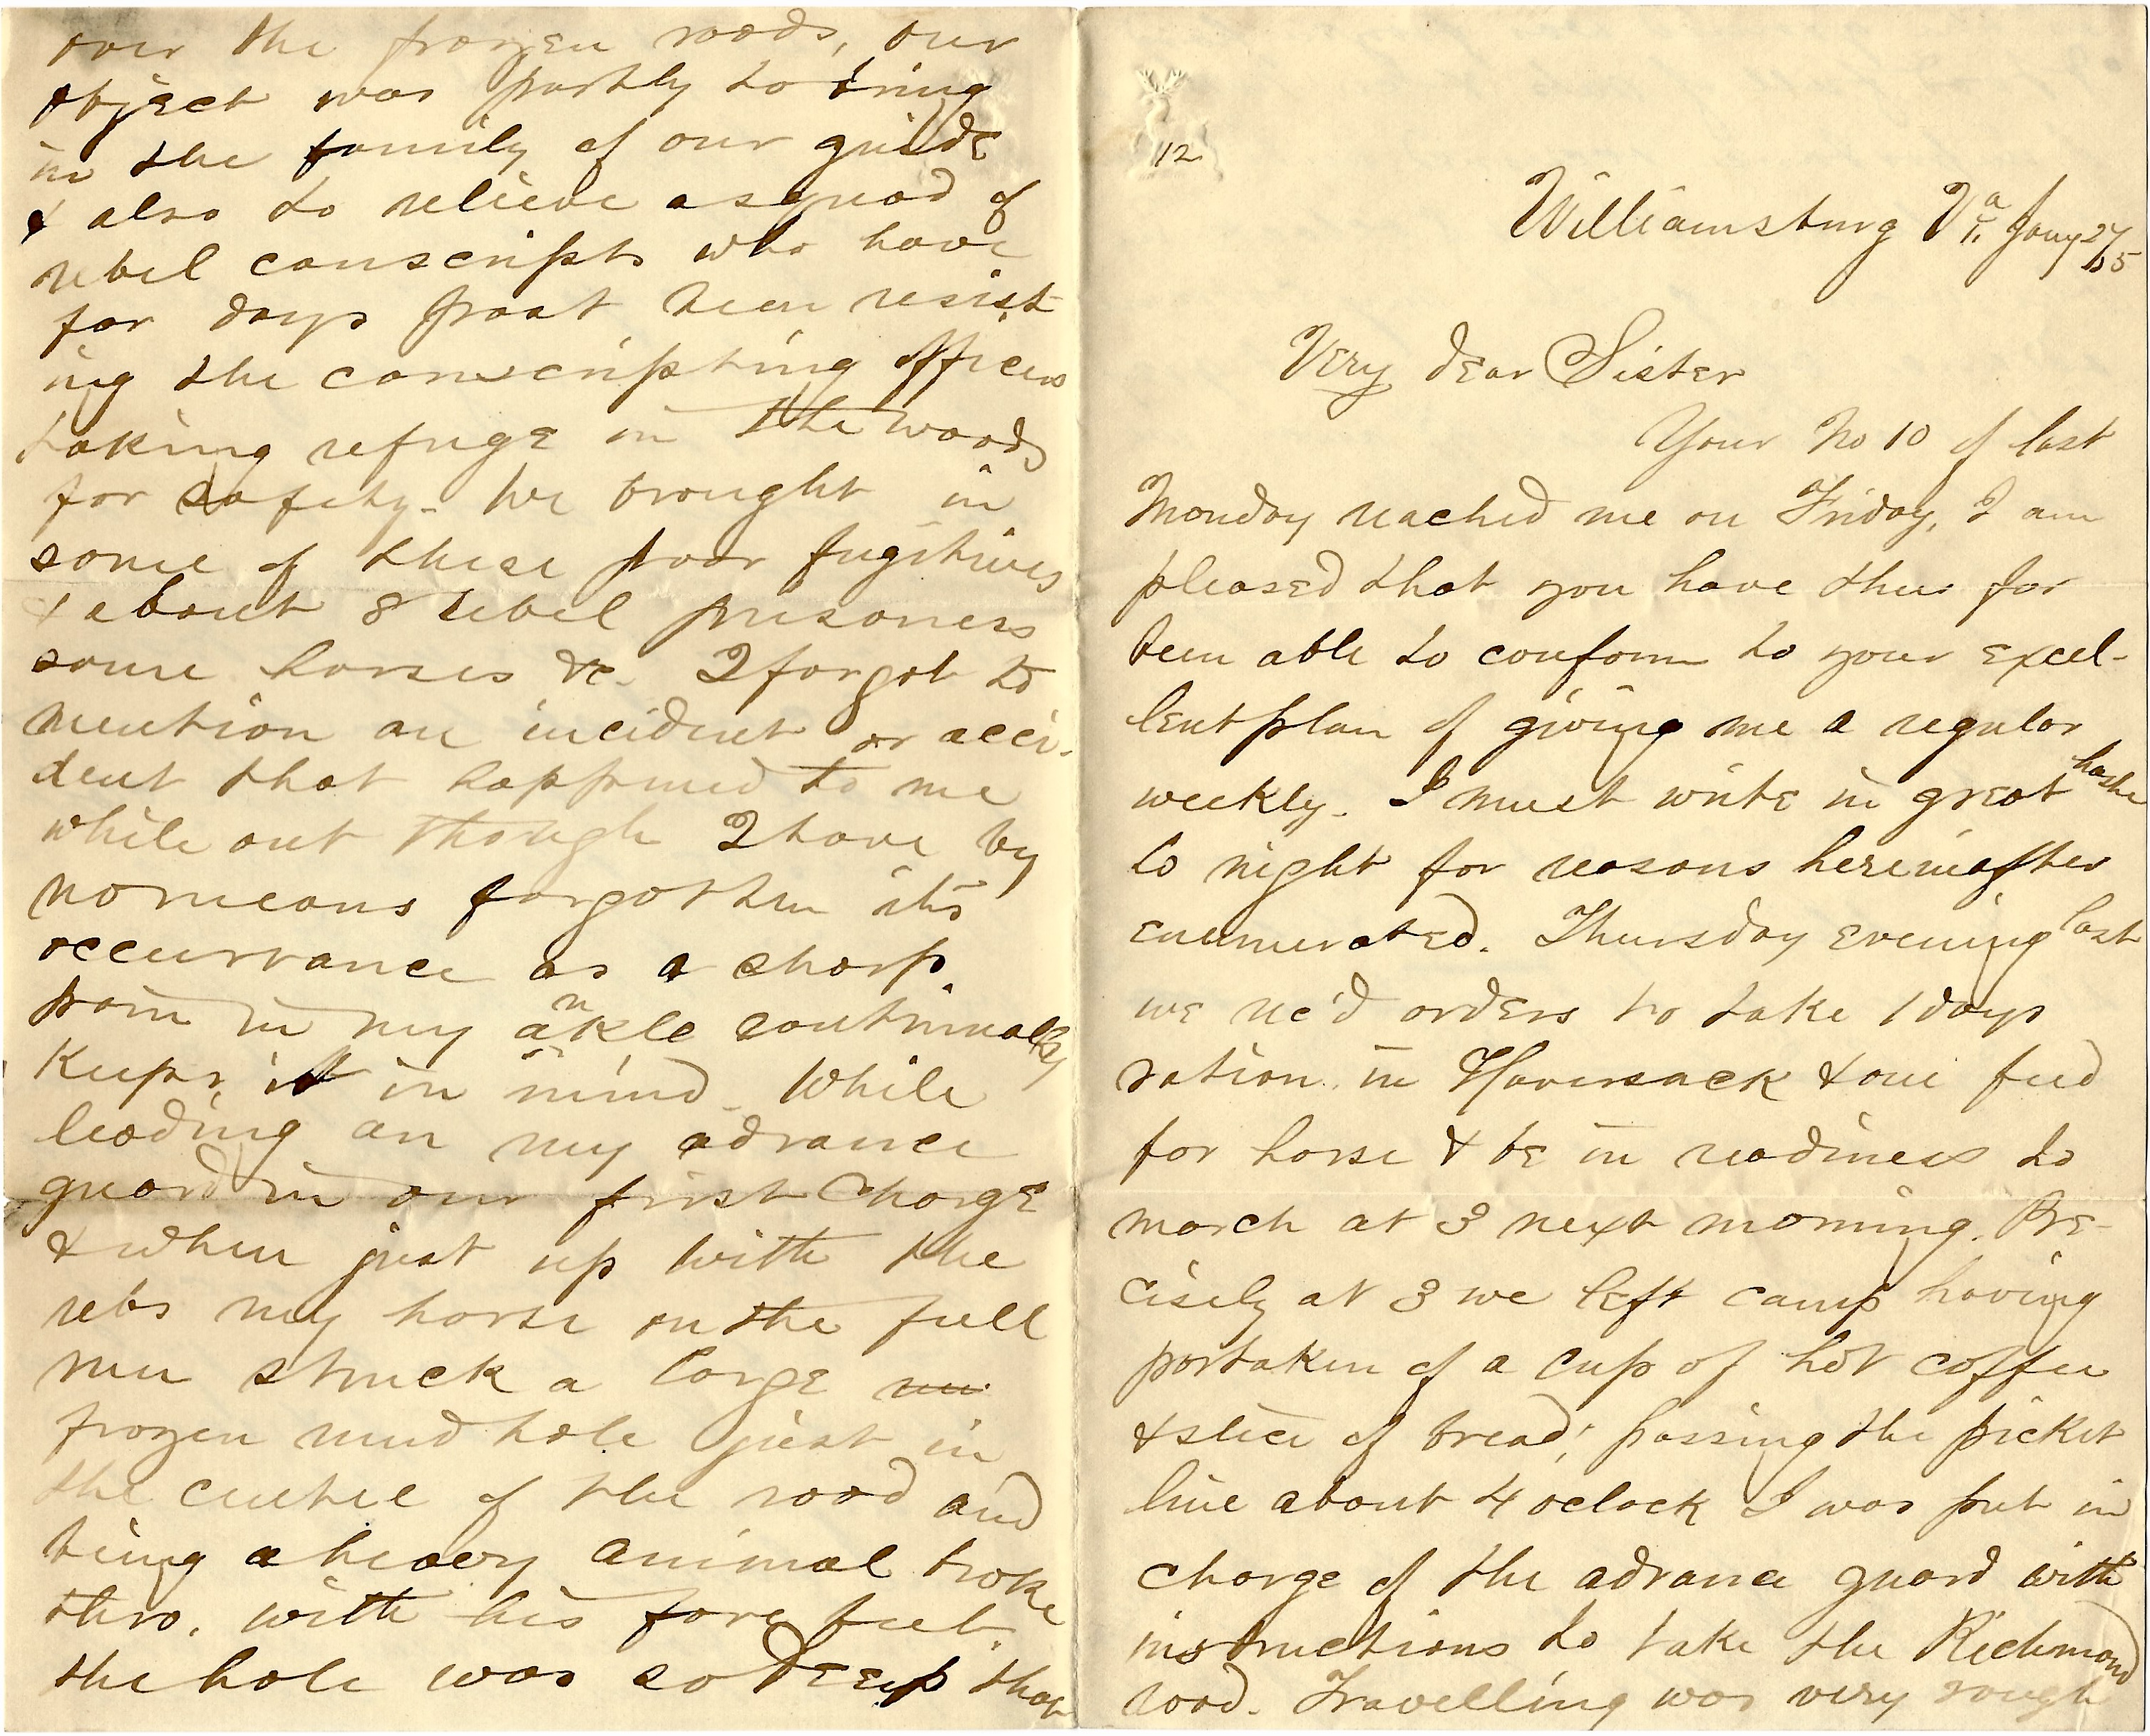 12
Williamsburg Va. Jany 27/65
Very dear Sister
Your No 10 of last
Monday reached me on Friday, I am
pleased that you have thus far
been able to conform to your excel-
lent plan of giving me a regular
weekly. I must write in great haste
to night for reasons hereinafter
enumerated. Thursday evening last
we rec'd orders to take 1 days
ration in Haversack & one feed
for horse & be in readiness to
march at 3 next morning. Pre-
cisely at 3 we left camp having
partaken of a cup of hot coffee
& slice of bread; passing the picket
line about 4 oclock I was put in
charge of the advance guard with
instructions to take the Richmond
road. Travelling was very rough
over the frozen roads, our
object was partly to bring
in the family of our guide
& also to relieve a squad of
rebel conscripts who have
for days past been resist-
ing the conscripting officers
taking refuge in the woods
for safety. We brought in
some of these poor fugitives
& about 8 rebel prisoners
some horses &c. I forgot to
mention an incident or acci-
dent that happened to me
while out though I have by
no means forgotten its
occurrance as a sharp
pain in my ankle continually
keeps it in mind. While
leading on my advance
guard in our first charge
& when just up with the
rebs my horse on the full
run struck a large
frozen mud hole just in
the center of the road and
being a heavy animal broke
thro. with his fore feet.
the hole was so deep that